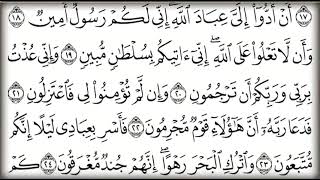 ١٧ أَنْ أَدُّوا إِلَىَّ عِبَادَ اللَّهِ إِنِّى لَكُمْ رَسُولٌ أَمِينٌ ١٨
وَأَن لَّا تَعْلُوا عَلَى اللَّهِ إِنِّىٓ ءَاتِيكُم بِسُلْطَٰنٍ مُّبِينٍ ١٩ وَإِنِّى عُذْتُ
بِرَبِّى وَرَبِّكُمْ أَن تَرْجُمُونِ ٢٠ وَإِن لَّمْ تُؤْمِنُوا لِى فَاعْتَزِلُونِ ٢١
فَدَعَا رَبَّهُۥٓ أَنَّ هَٰٓؤُلَآءِ قَوْمٌ مُّجْرِمُونَ ٢٢ فَأَسْرِ بِعِبَادِى لَيْلًا إِنَّكُم
مُّتَّبَعُونَ ٢٣ وَاتْرُكِ الْبَحْرَ رَهْوًا إِنَّهُمْ جُندٌ مُّغْرَقُونَ ٢٤ كَمْ